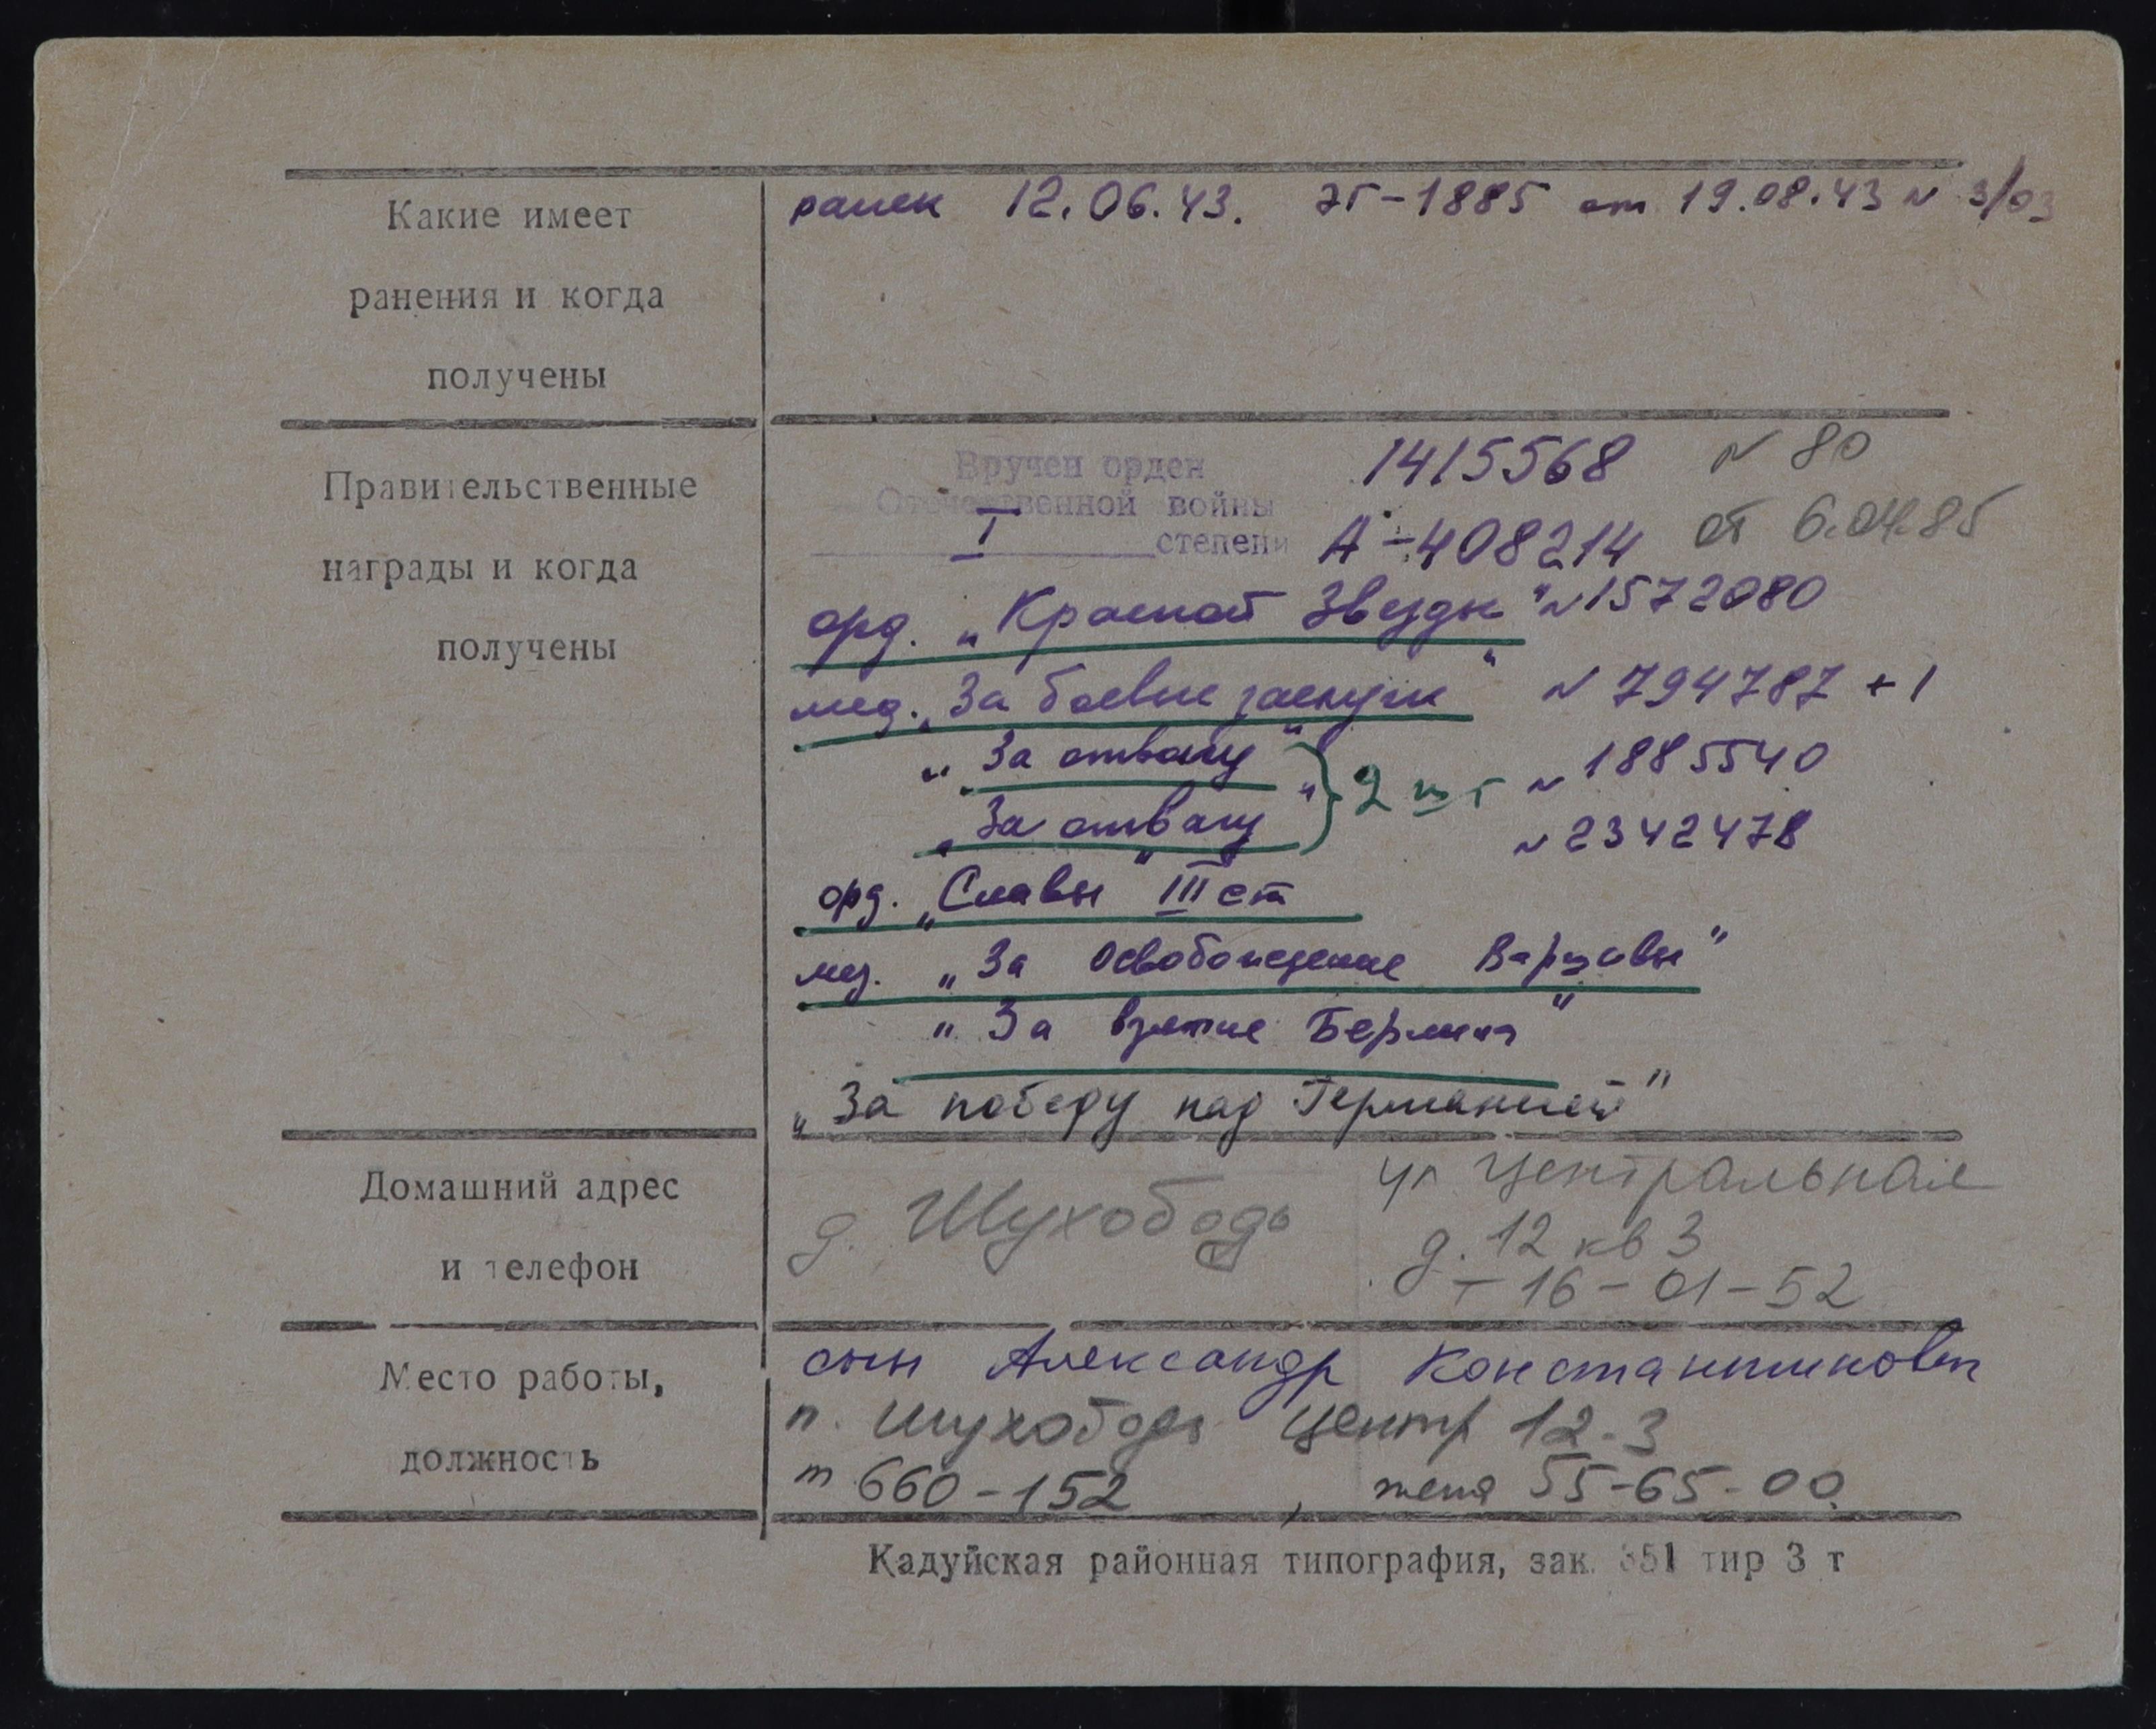 Какие имеет
ранения и когда
получены
ранен 12.06.43. ЭГ-1885 от 19.08.43 N 3/03
Правительственные
награды и когда
получены
Вручен орден
Отечественной войны
I степени
1415568 N 80
А-408214 от 6.04.85
орд. „Красной Звезды" N 1572080
мед. „За боевые заслуги" N 794787 + 1
„За отвагу" N 1885540
2 шт
„За отвагу" N 2342478
орд. „Славы" III ст
мед. „За Освобождение Варшавы"
„За взятие Берлина"
„За победу над Германией"
Домашний адрес
и телефон
д. Шухободь ул Центральная
д. 12 кв 3
т 16-01-52
Место работы,
должность
сын Александр Константинович
п. Шухободь Центр 12-3
т 660-152, жена 55-65-00
Кадуйская районная типография, зак. 351 тир 3 т